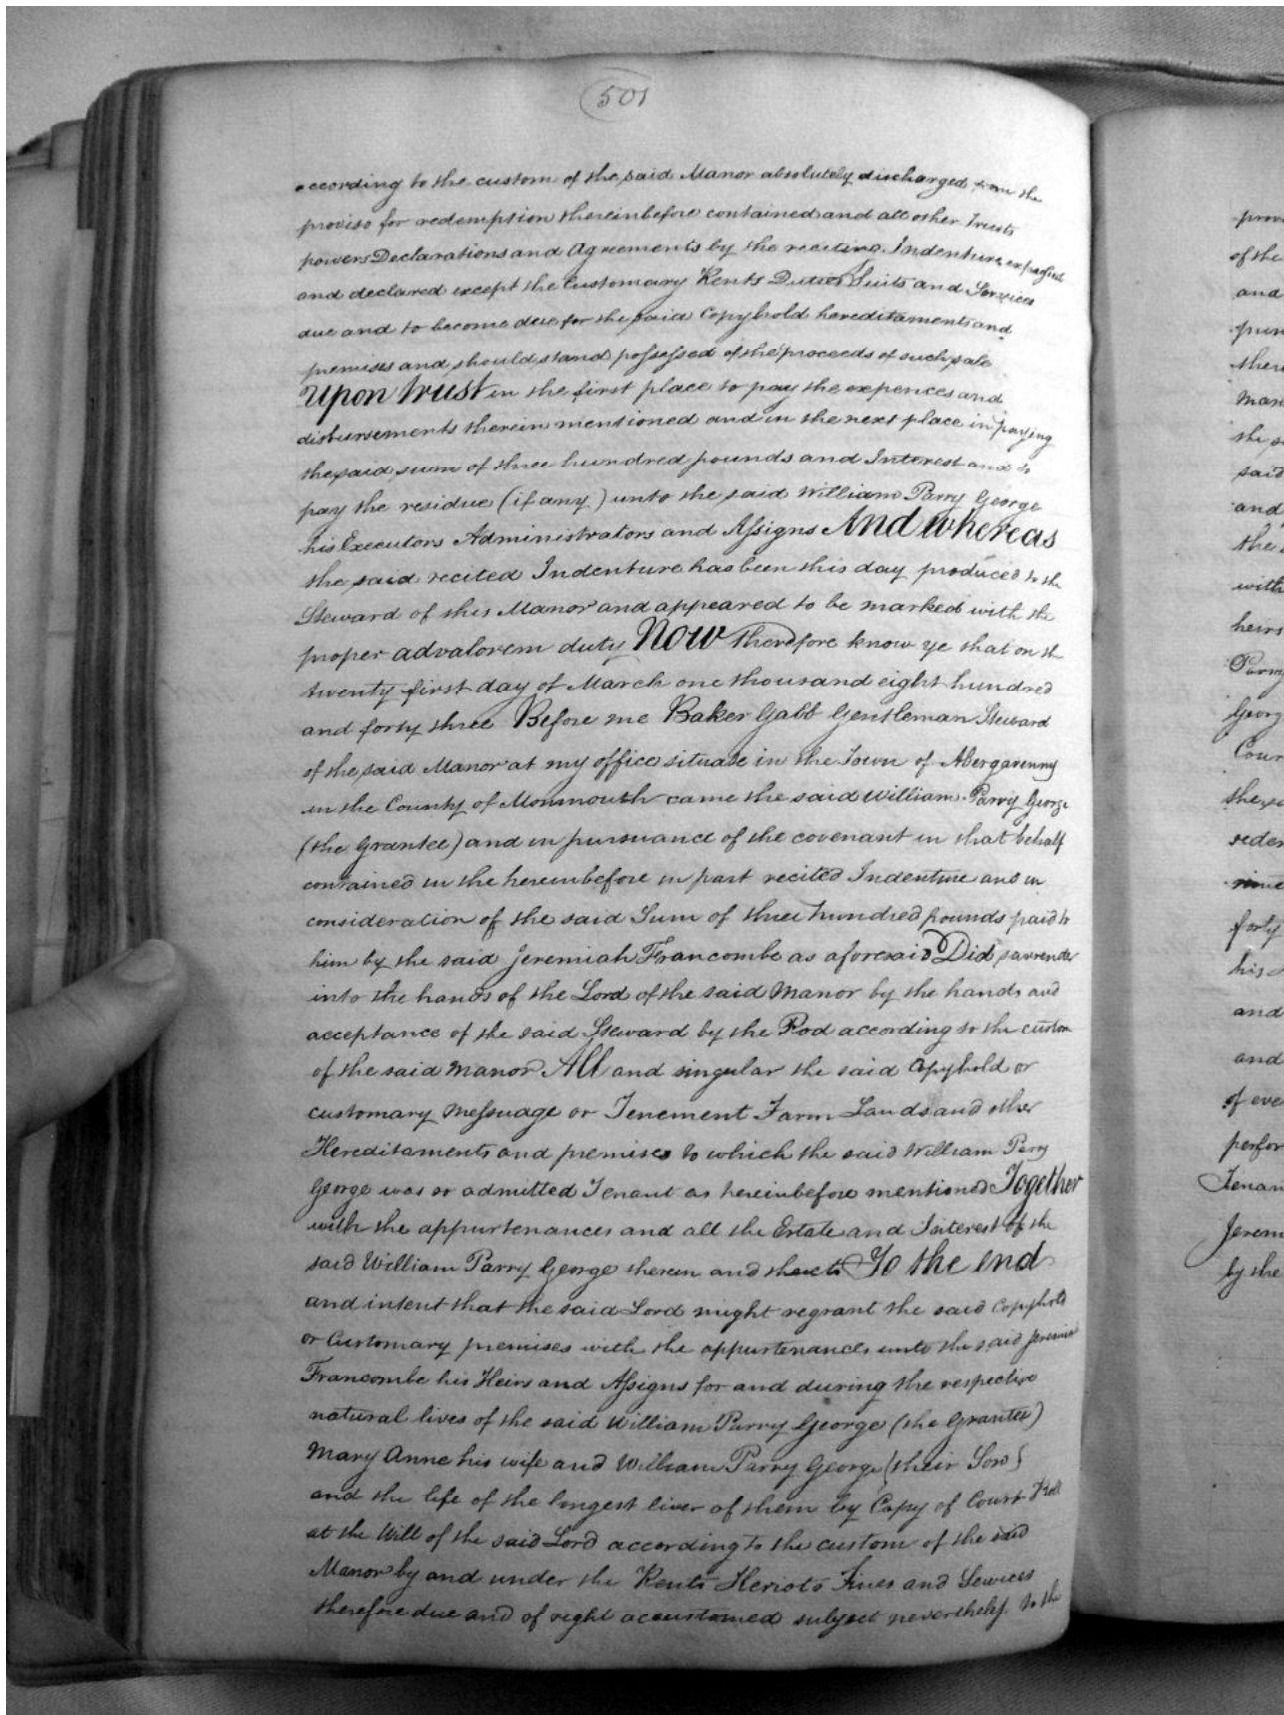 501
according to the custom of the said Manor absolutely discharged from the
proviso for redemption thereinbefore contained and all other Trusts
powers Declarations and Agreements by the reciting Indenture expressed
and declared except the Customary Rents Duties Suits and Services
due and to become due for the said Copyhold hereditaments and
premises and should stand possessed of the proceeds of such sale
Upon trust in the first place to pay the expences and
disbursements therein mentioned and in the next place in paying
the said sum of three hundred pounds and Interest and to
pay the residue (if any) unto the said William Parry George
his Executors Administrators and Assigns And whereas
the said recited Indenture has been this day produced to the
Steward of this Manor and appeared to be marked with the
proper advalorem duty Now Therefore know ye that on th
twenty first day of March one thousand eight hundred
and forty three Before me Baker Gabb Gentleman Steward
of the said Manor at my office situate in the Town of Abergavenny
in the County of Monmouth came the said William Parry George
(the Grantee) and in pursuance of the covenant in that behalf
contained in the hereinbefore in part recited Indenture and in
consideration of the said Sum of three hundred pounds paid to
him by the said Jeremiah Francombe as aforesaid Did surrender
into the hands of the Lord of the said Manor by the hands and
acceptance of the said Steward by the Rod according to the custom
of the said Manor All and singular the said Copyhold or
customary Messuage or Tenement Farm Lands and other
Hereditaments and premises to which the said William Parry
George was so admitted Tenant as hereinbefore mentioned Together
with the appurtenances and all the Estate and Interest of the
said William Parry George therein and thereto To the end
and intent that the said Lord might regrant the said Copyhold
or Customary premises with the appurtenances unto the said Jeremiah
Francombe his Heirs and Assigns for and during the respective
natural lives of the said William Parry George (the Grantee)
Mary Anne his wife and William Parry George (their Son)
and the life of the longest liver of them by Copy of Court Roll
at the Will of the said Lord according to the custom of the said
Manor by and under the Rents Heriots Fines and Services
therefore due and of right accustomed subject nevertheless to the
of the
and
the
said
and
the
with
heirs
Parry
his
and
and
by the